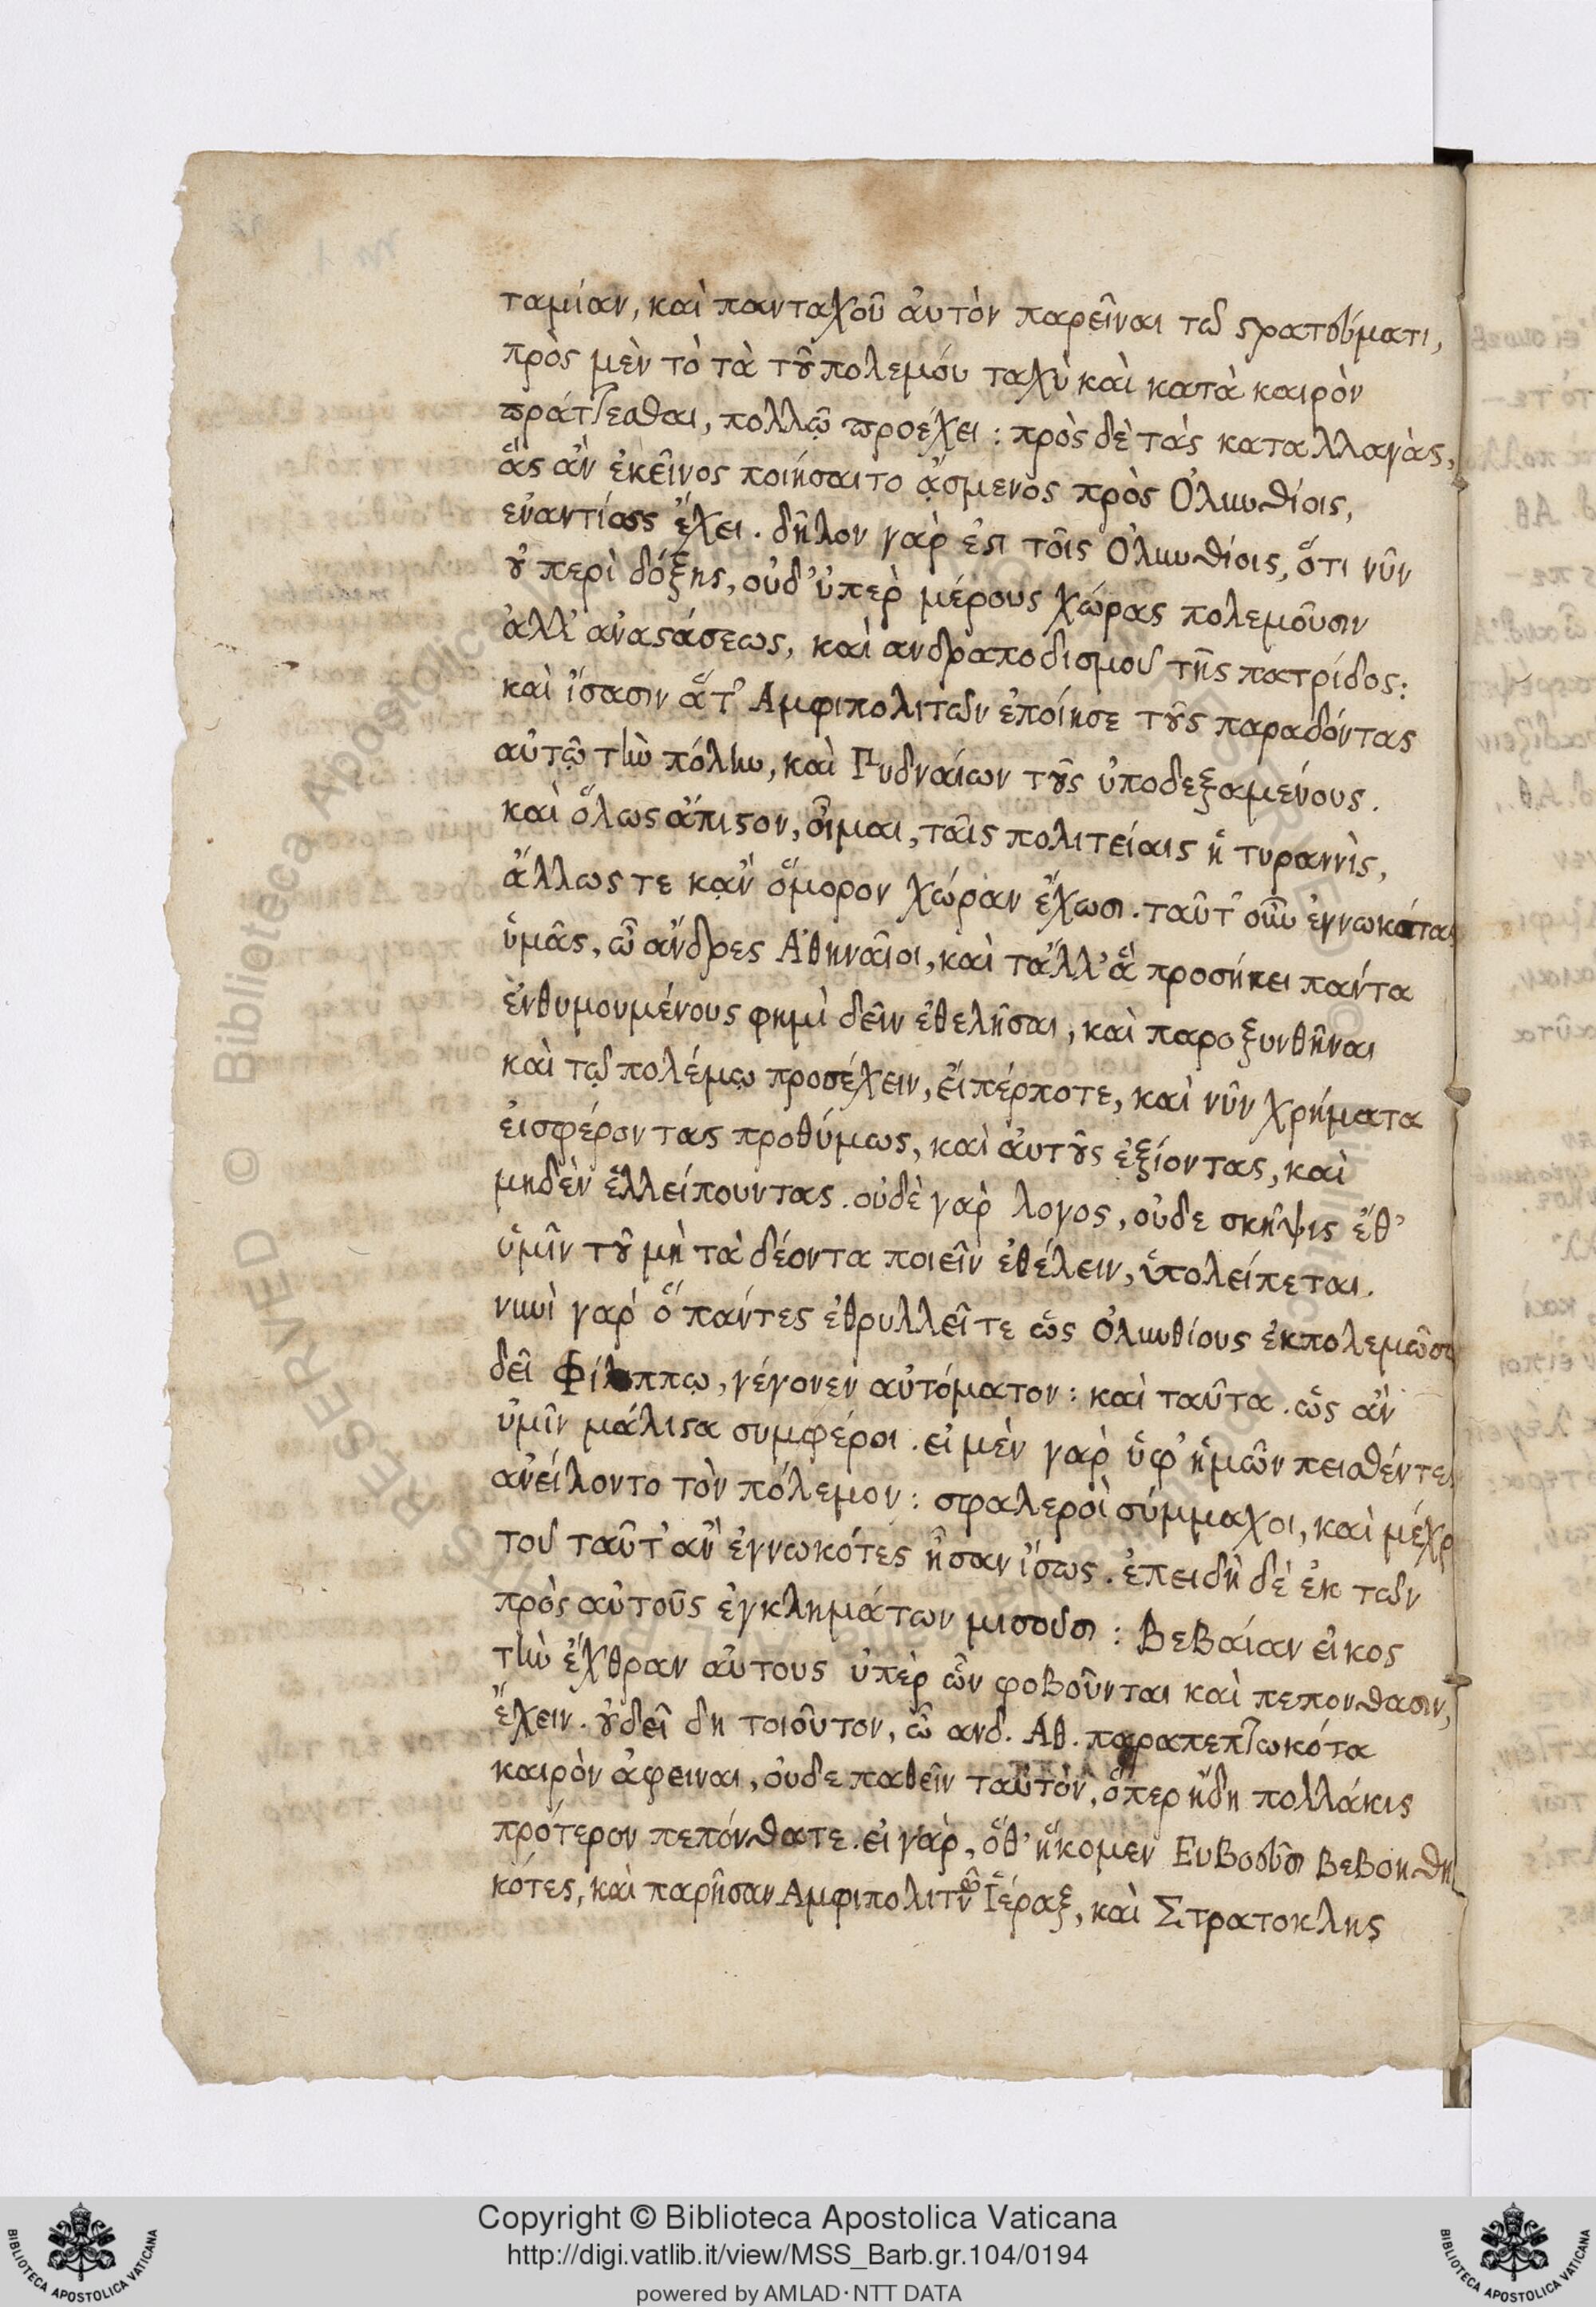 ταμίαν, καὶ πανταχοῦ ἀυτὸν παρεῖναι τῶ ϛρατεύματι,
πρὸς μὲν τὸ τὰ τȣ͂ πολεμόυ ταχὺ καὶ κατὰ καιρὸν
πράττεσθαι, πολλῷ προέχει : πρὸς δὲ τὰς καταλλαγὰς,
ἃς ἂν ἐκεῖνος ποιήσαιτο ᾄσμενος πρὸς Ὀλυνθίοις,
ἐναντίως ἔχει . δῆλον γὰρ ἐϛι τοῖς Ὀλυνθίοις, ὅτι νῦν
ȣ̓ περὶ δόξης, οὐδ' ὑπερ μέρους χώρας πολεμοῦσιν
ἀλλ' ἀναϛάσεως, καὶ ανδραποδισμοῦ τῆς πατρίδος :
καὶ ἴσασιν ἅ τ' Αμφιπολιτῶν ἐποίησε τȣ͂ς παραδόντας
αὐτῷ τὴν πόλην, καὶ Πυδναίων τȣ͂ς ὑποδεξαμένους .
καὶ ὅλως ἄπιϛον, οἶμαι, ταῖς πολιτείαις ἡ τυραννὶς,
ἄλλως τε κᾂν ὅμορον χώραν ἔχωσι . ταῦτ' οὖν ἐγνωκότας
ὑμᾶς, ὦ ἄνδρες Ἀθηναῖοι, καὶ τἄλλ' ἃ προσήκει πάντα
ἐνθυμουμένους φημὶ δεῖν ἐθελῆσαι, καὶ παροξυνθῆναι
καὶ τῷ πολέμῳ προσέχειν, εἴπέρποτε, καὶ νῦν χρήματα
εἰσφέροντας προθύμως, καὶ ἀυτȣ͂ς ἐξίοντας, καὶ
μηδὲν ἐλλείπουντας . οὐδὲ γαρ λογος, οὐδε σκῆψις ἔθ'
ὑμῖν τȣ͂ μὴ τὰ δέοντα ποιεῖν ἐθέλειν, ὑπολείπεται .
νυνὶ γαρ ὃ πάντες ἐθρυλλεῖτε ὡς Ὀλυνθίους ἐκπολεμῶσαι
δεῖ Φίλιππῳ, γέγονεν αὐτόματον : καὶ ταῦτα . ὡς ἂν
ὑμῖν μάλιϛα συμφέροι . εἰ μὲν γαρ ὑφ' ἡμῶν πεισθέντες
ἀνείλοντο τὸν πόλεμον : σφαλεροὶ σύμμαχοι, καὶ μέχρ
τοῦ ταῦτ' ἂν ἐγνωκότες ἦσαν ἴσως . ἐπειδὴ δὲ ἐκ τῶν
πρὸς αὑτοῦς ἐγκλημάτων μισοῦσι : Βεβαίαν εἰκος
τὴν ἔχθραν αὐτους ὑπὲρ ὧν φοβοῦνται καὶ πεπονθασιν,
ἔχειν . ȣ̓ δεῖ δη τοιοῦτον, ὦ ανδ. Αθ. παραπεπτωκότα
καιρὸν ἀφειναι, ὀυδε παθεῖν ταὐτὸν, ὅπερ ἤδη πολλάκις
πρότερον πεπόνθατε . εἰ γὰρ, ὅθ' ἥκομεν Ευβοεῦσι βεβοηθη
κότες, καὶ παρῆσαν Αμφιπολιτῶν Ἱέραξ, καὶ Στρατοκλης
Copyright © Biblioteca Apostolica Vaticana
http://digi.vatlib.it/view/MSS_Barb.gr.104/0194
powered by AMLAD·NTT DATA